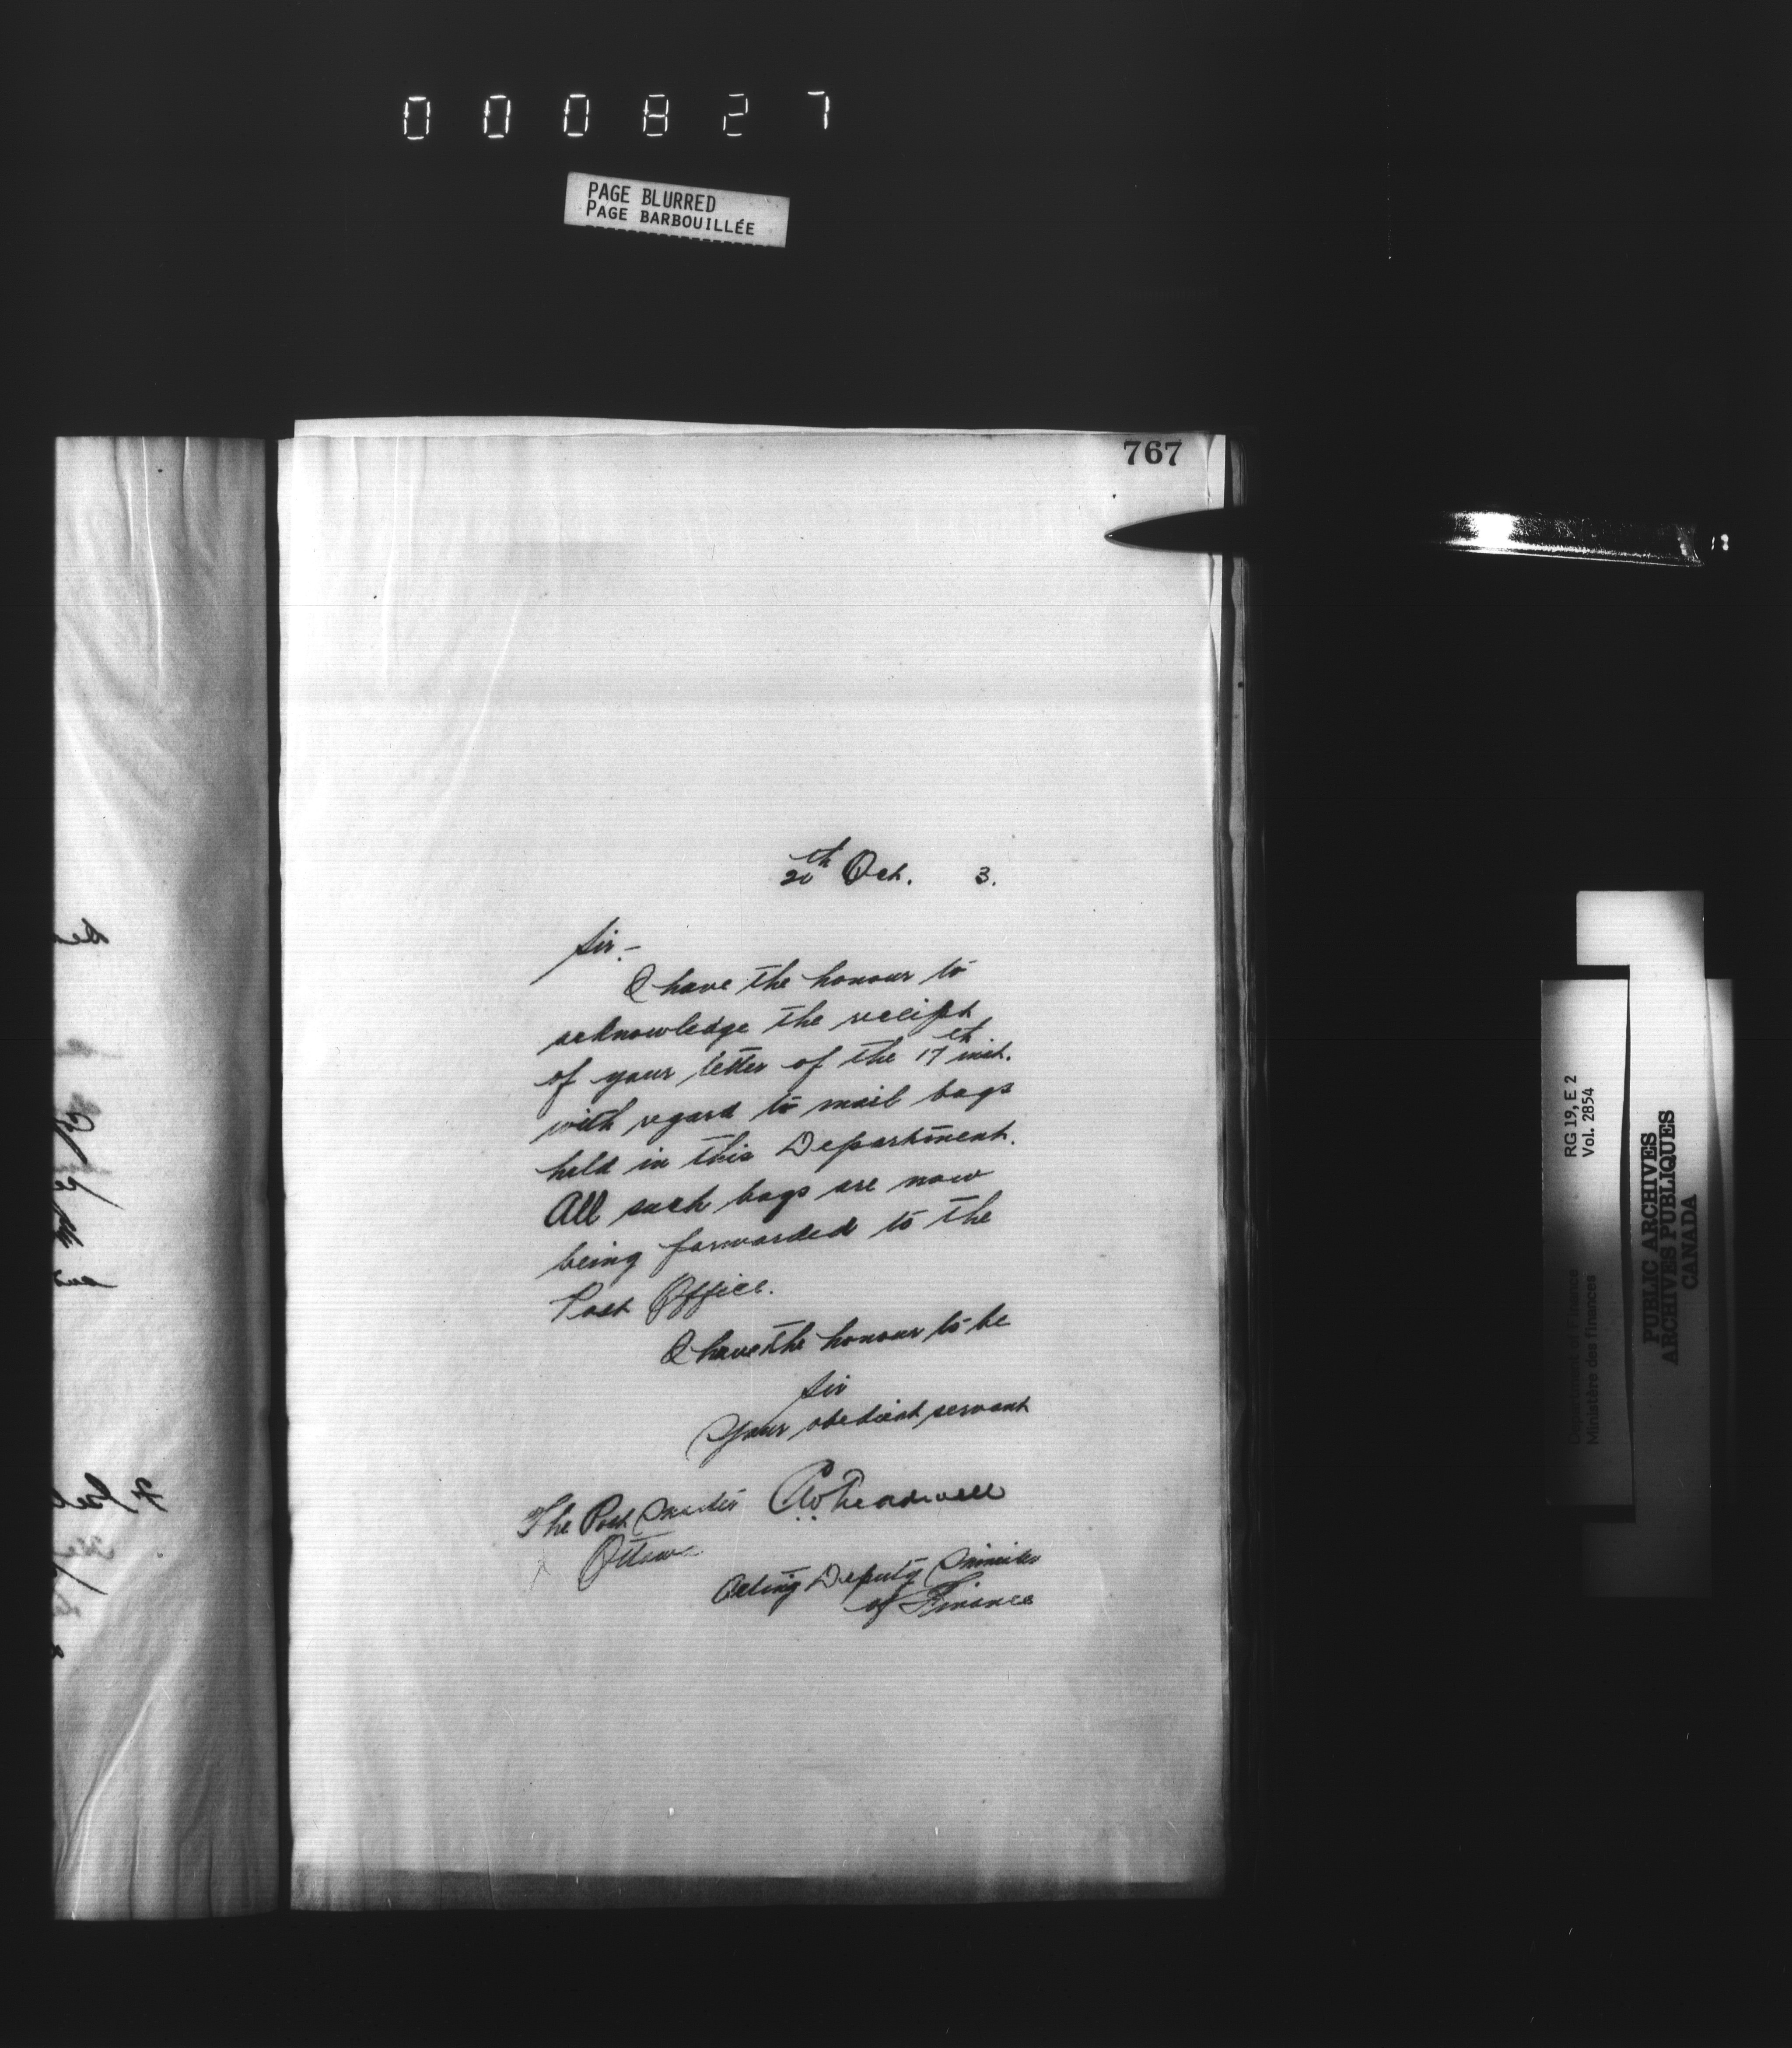 000827
PAGE BLURRED
PAGE BARBOUILLÉE
767
20th Oct. 3.
Sir:-
I have the honour to
acknowledge the receipt
of your letter of the 17th inst.
with regard to mail bags
held in this Department.
All such bags are now
being forwarded to the
Post Office.
I have the honour to be
Sir
Your obedient servant
The Post Master
Ottawa
Acting Deputy Minister
of Finance
RG 19, E 2
Vol. 2854
Department of Finance
Ministère des finances
PUBLIC ARCHIVES
ARCHIVES PUBLIQUES
CANADA